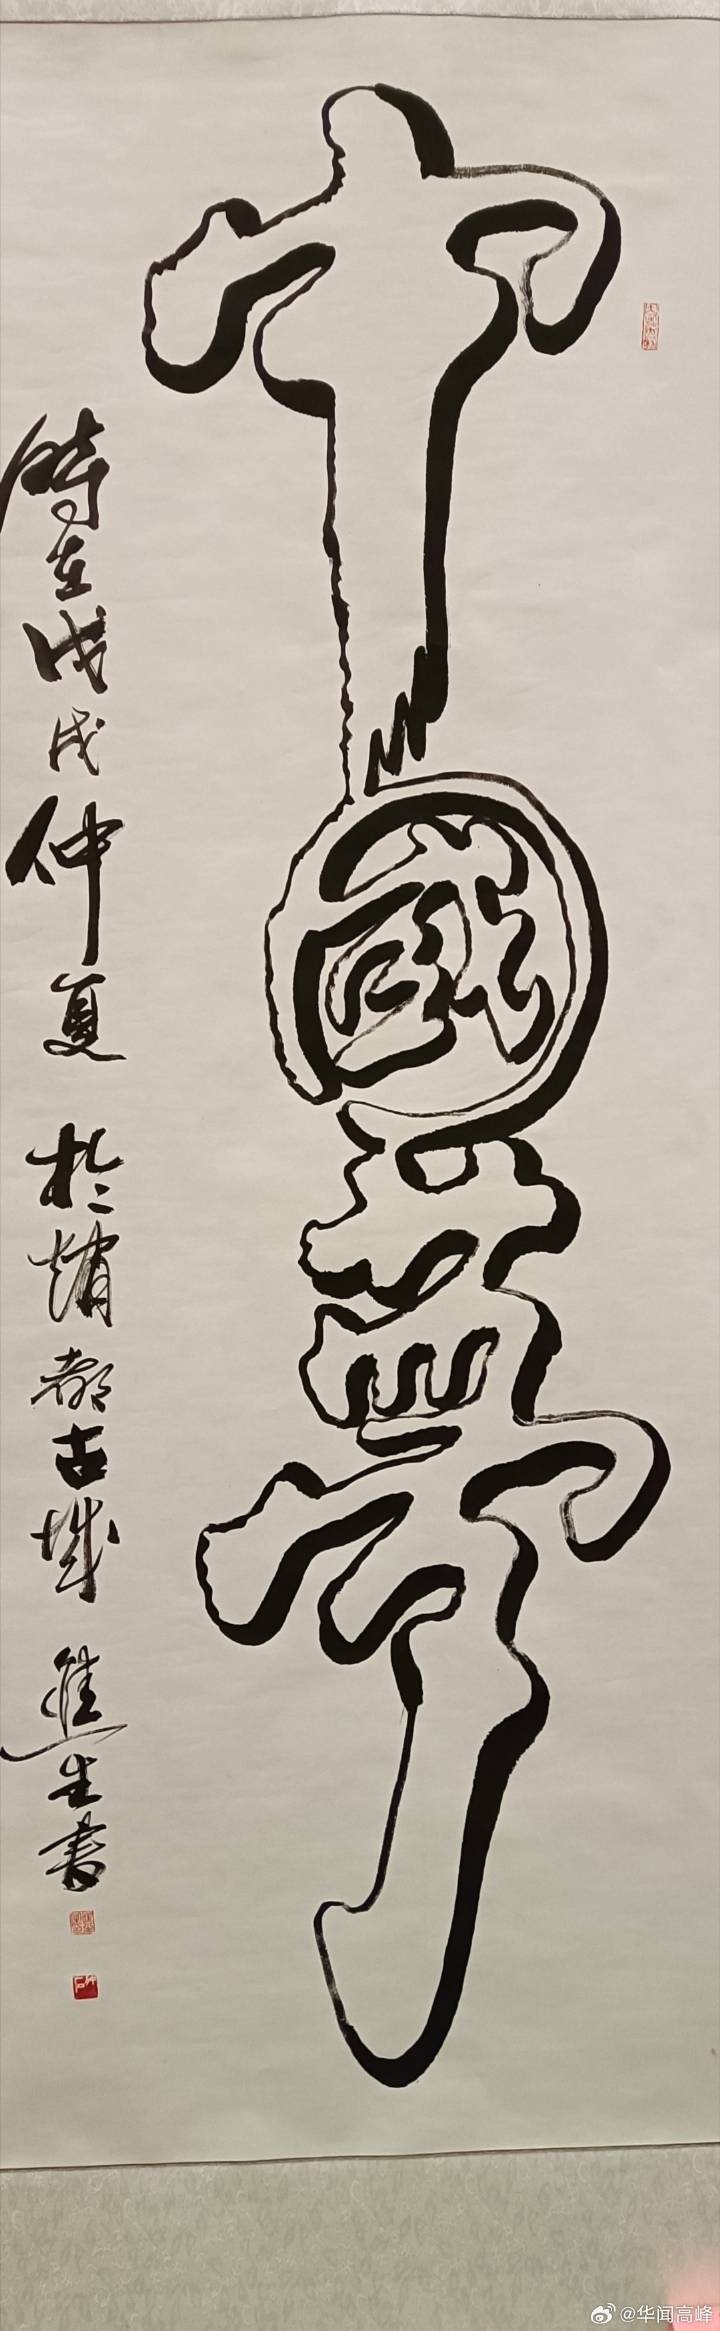 中國夢
時在戊戌仲夏於趙都古城進生書
@华闻高峰